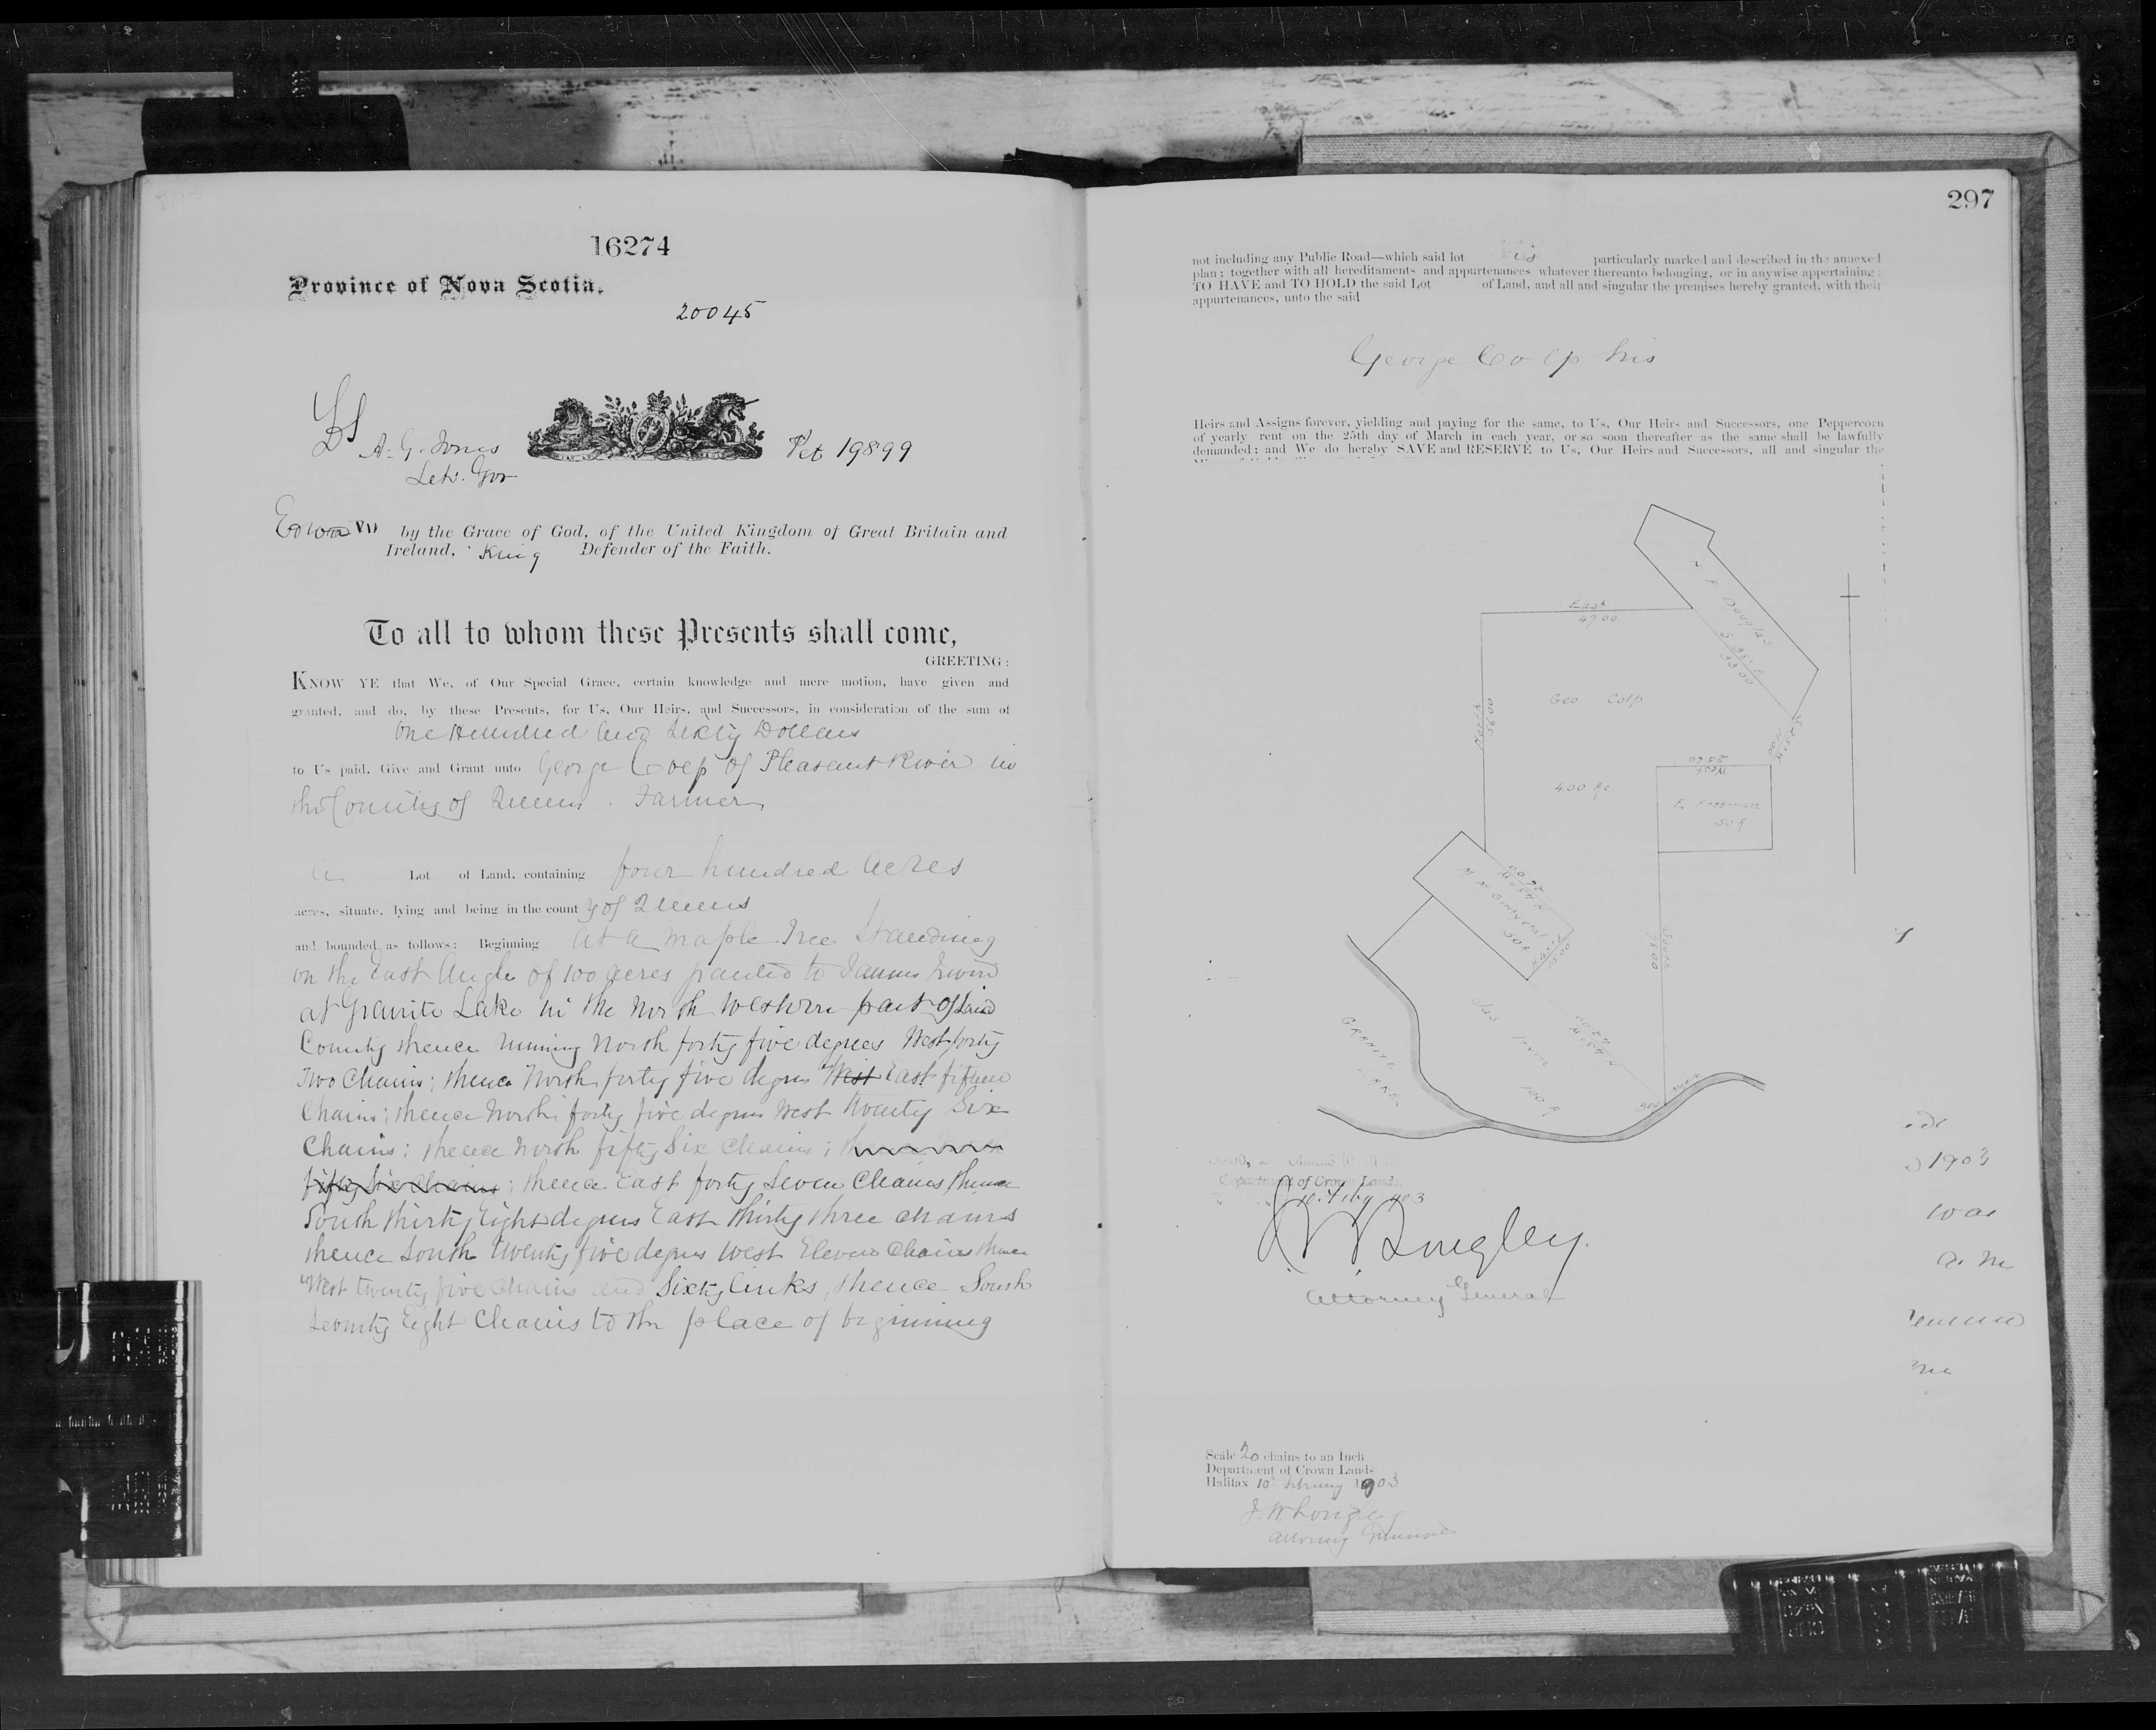 16274
Province of Nova Scotia.
20045
LS
A. G. Jones
Pet 19899
Lt. Gov
Edwd VII by the Grace of God, of the United Kingdom of Great Britain and
Ireland, King Defender of the Faith.
To all to whom these Presents shall come,
GREETING:
KNOW YE that We, of Our Special Grace, certain knowledge and mere motion, have given and
granted, and do, by these Presents, for Us, Our Heirs, and Successors, in consideration of the sum of
One Hundred and Sixty Dollars
to Us paid, Give and Grant unto George Colp of Pleasant River in
the County of Queens. Farmer
a Lot of Land, containing four hundred acres
acres, situate, lying and being in the county of Queens
and bounded as follows: Beginning at a maple Tree Standing
on the East Angle of 100 acres granted to James Irwin
at Granite Lake in the North Western part of said
County thence running North forty five degrees West forty
Two Chains; thence North forty five degrees West East fifteen
Chains; thence North forty five degrees West twenty Six
Chains; thence North fifty Six Chains;
fifty Six Chains; thence East forty Seven Chains thence
South thirty Eight degrees East thirty three chains
thence South twenty five degrees West Eleven Chains thence
West twenty five Chains and Sixty links, thence South
Seventy Eight Chains to the place of beginning
297
not including any Public Road—which said lot is particularly marked and described in the annexed
plan; together with all hereditaments and appurtenances whatever thereunto belonging, or in anywise appertaining:
TO HAVE and TO HOLD the said Lot of Land, and all and singular the premises hereby granted, with their
appurtenances, unto the said
George Colp his
Heirs and Assigns forever, yielding and paying for the same, to Us, Our Heirs and Successors, one Peppercorn
of yearly rent on the 25th day of March in each year, or so soon thereafter as the same shall be lawfully
demanded; and We do hereby SAVE and RESERVE to Us, Our Heirs and Successors, all and singular the
East
47.00
Douglas
S 38° E
33.00
North
56.00
Geo Colp
S 25° W
11.00
West
25.60
400 Ac
E. Freeman
50 A
N 45° W
26.00
50 A
N 45° E
15.00
South
78.00
Jas Irwin
100 A
N 45° W
42.00
GRANITE
LAKE
Department of Crown Lands,
1903
J W Longley.
Attorney General
1903
was
Scale 20 chains to an Inch
Department of Crown Lands
Halifax 10th February 1903
J. W. Longley
Attorney General